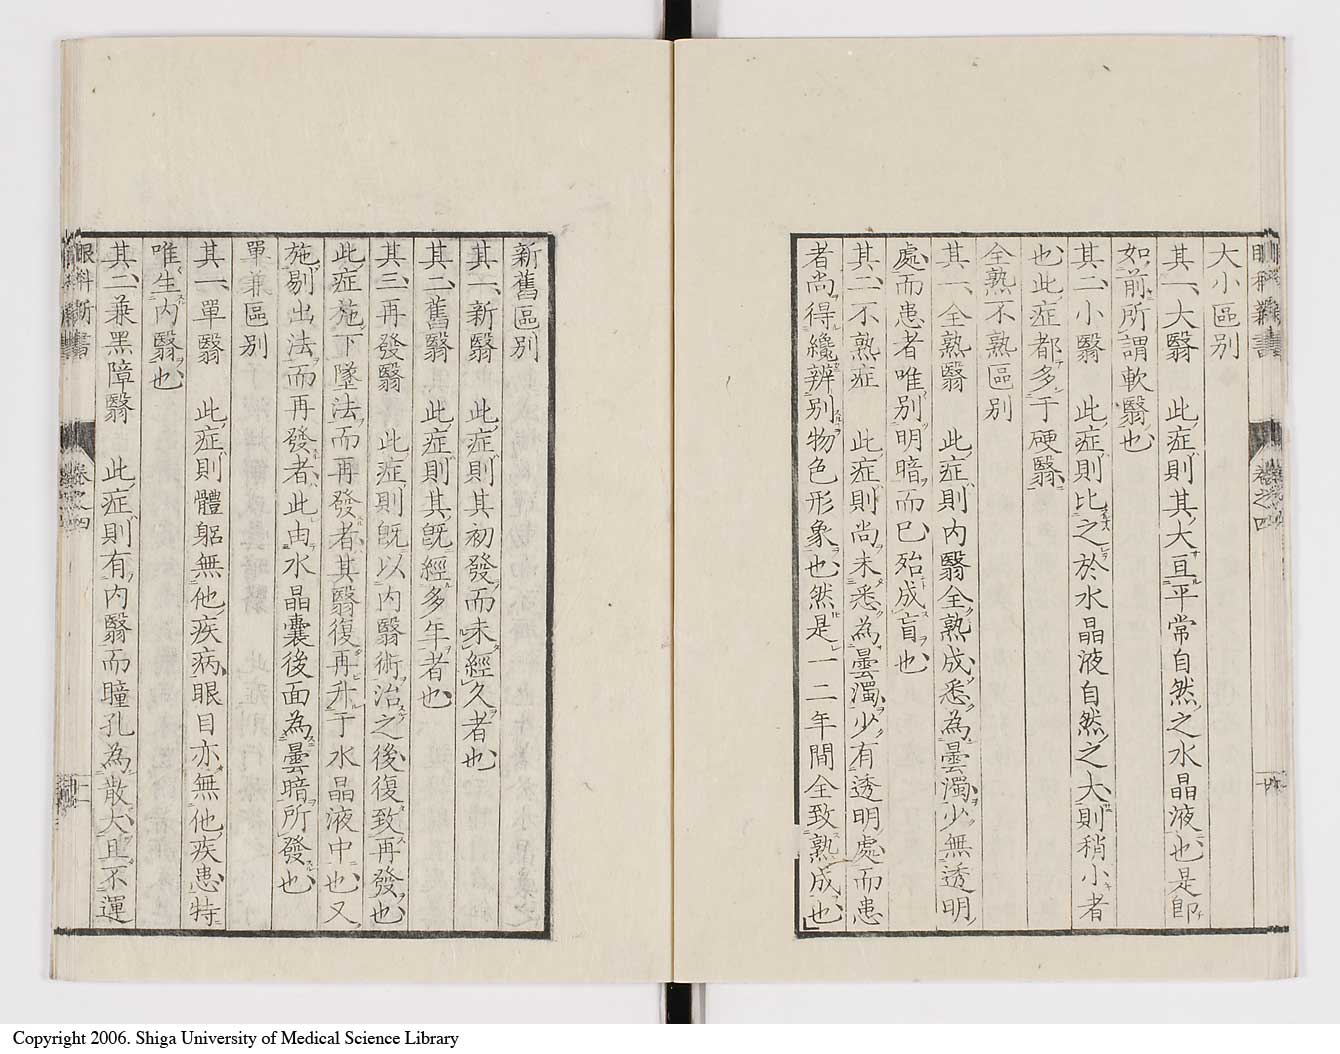 大小區別
其一、大翳　此症則其大亘平常自然之水晶液也是卽
如前所謂軟翳也
其二、小翳　此症則比之於水晶液自然之大則稍小者
也此症都多于硬翳
全熟不熟區別
其一、全熟翳　此症則内翳全熟成悉為曇濁少無透明
處而患者唯別明暗而已殆成盲也
其二、不熟症　此症則尚未悉為曇濁少有透明處而患
者尚得纔辨別物色形象也然是一二年間全致熟成也
新舊區別
其一、新翳　此症則其初發而未經久者也
其二、舊翳　此症則其既經多年者也
其三、再發翳　此症則既以内翳術治之後復致再發也
此症施下墜法而再發者其翳復再升于水晶液中也又
施剔出法而再發者此由水晶囊後面為曇暗所發也
單兼區別
其一、單翳　此症則體軀無他疾病眼目亦無他疾患特
唯生内翳也
其二、兼黑障翳　此症則有内翳而瞳孔為散大且不運
眼科新書
卷之四
Copyright 2006. Shiga University of Medical Science Library